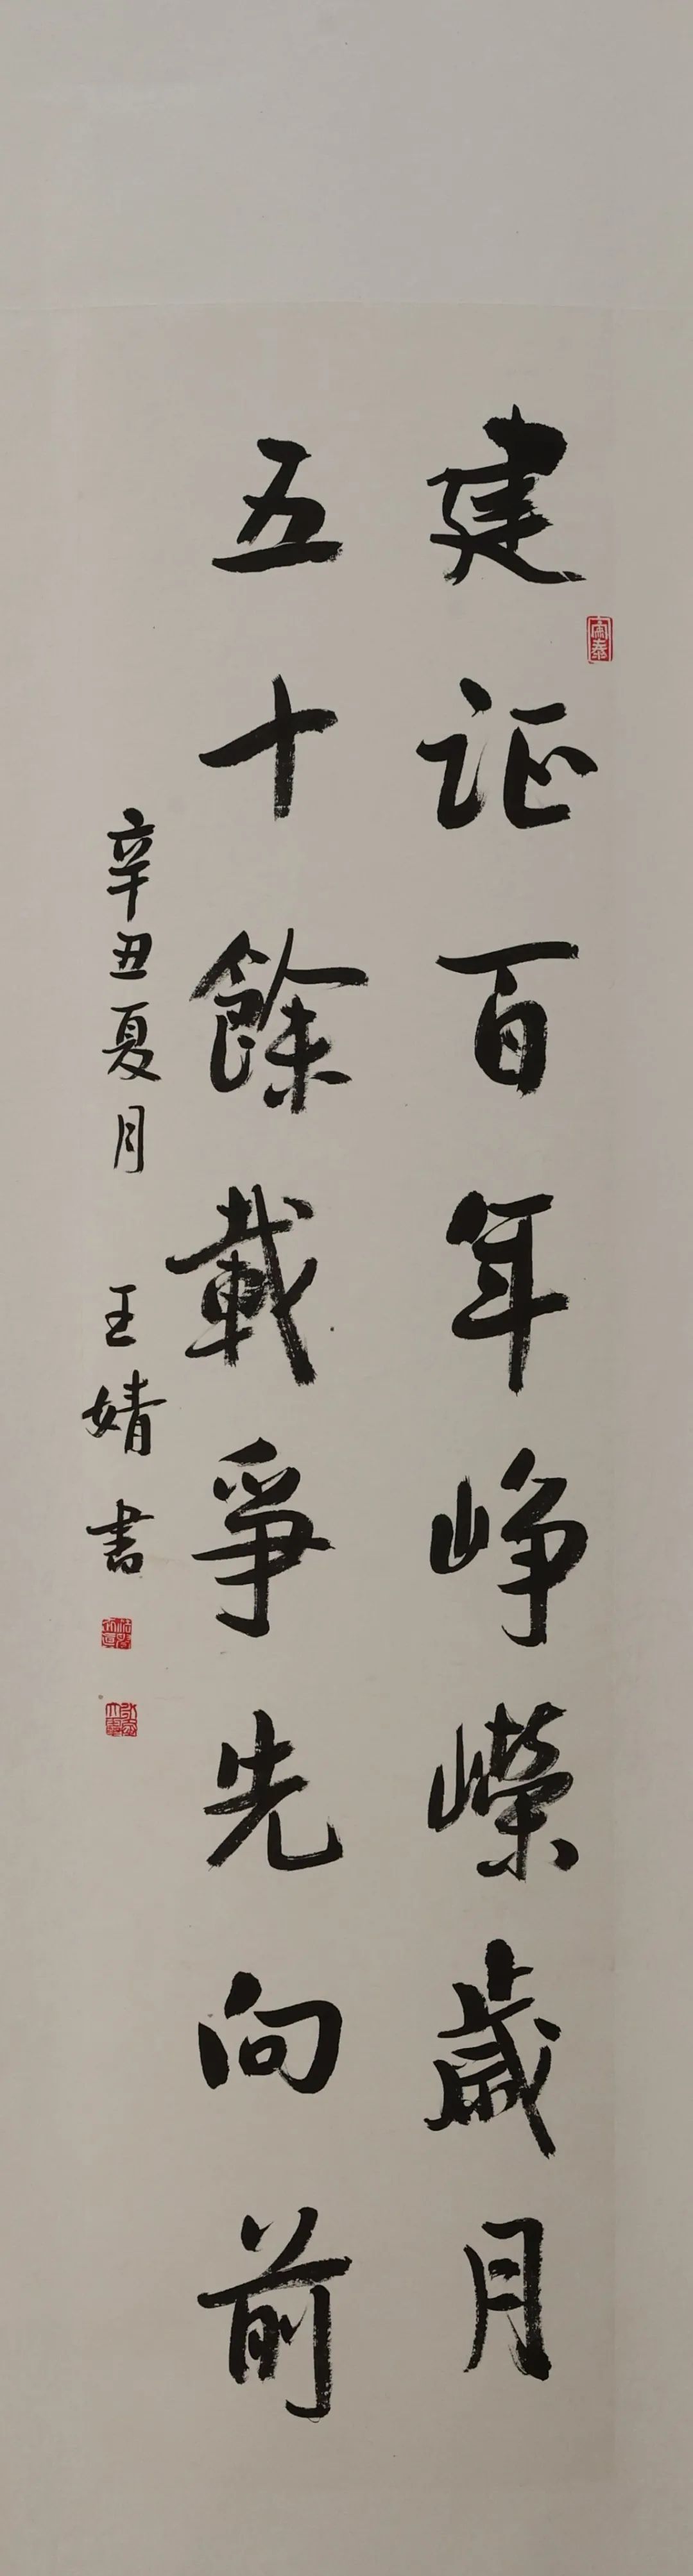 建证百年峥嵘歲月
五十餘載爭先向前
辛丑夏月 王婧書